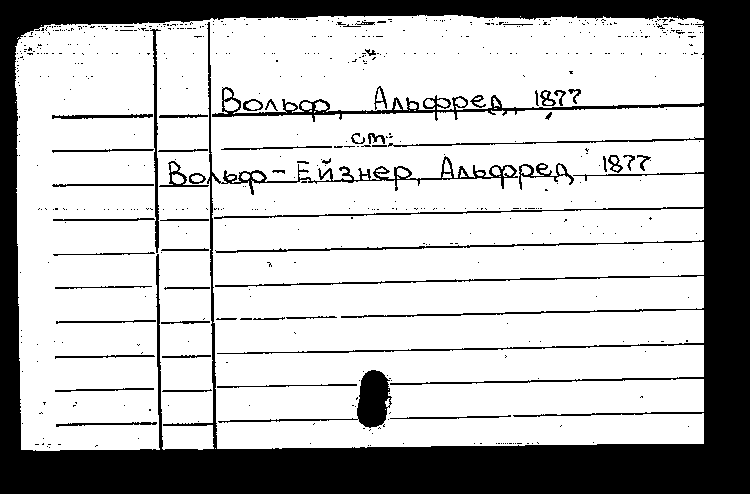 Вольф, Альфред, 1877
ст:
Вольф-Ейзнер, Альфред, 1877